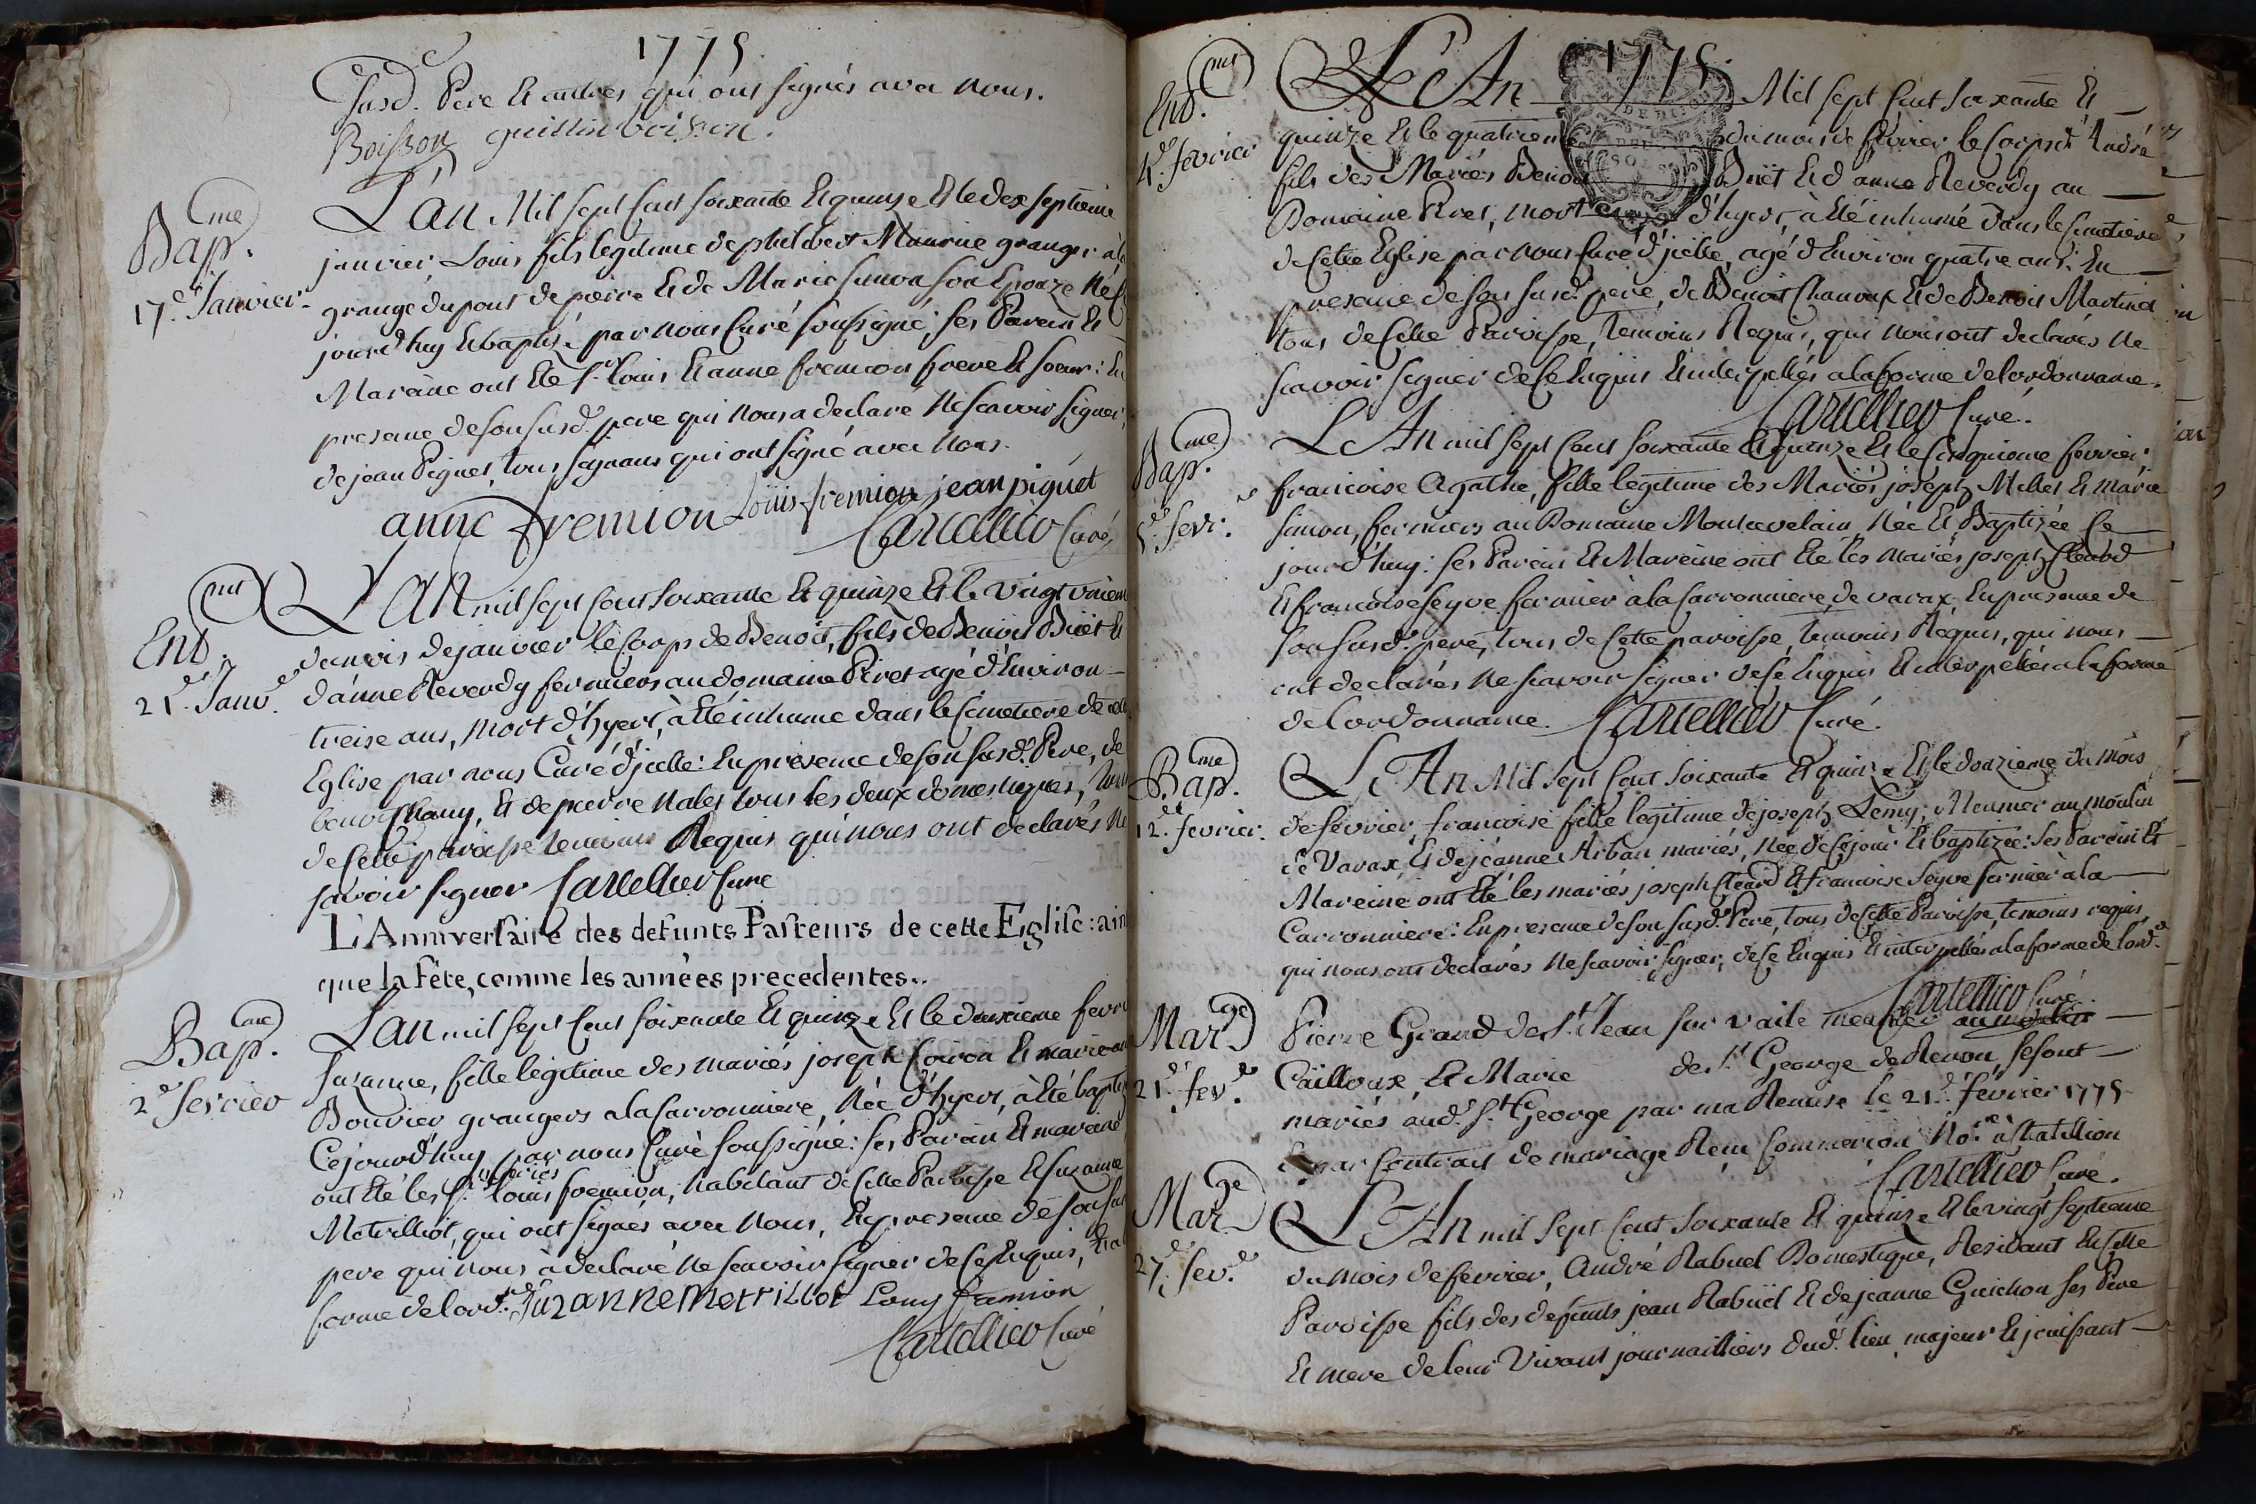 1775.
susd. Pere et autres qui ont signés avec nous.
Boisson guillin boisson.
Bap.me
17.e Janvier.
L'an Mil sept Cent soixante Et quinze Et le dix septieme
janvier, Louis fils legitime de philibert Maurice granger à la
grange du pont de pierre Et de Marie simon son Epouze Né Ce
jourd'huy Et baptisé par nous Curé soussigné; ses Parein Et
Mareine ont Eté s.r Louis Et anne fremion frere Et soeur: En
presence de son susd. pere qui nous a declaré Ne scavoir signer,
de jean Piguet, tous signans qui ont signé avec Nous.
anne fremion Loüis fremion jean piguet
Cartellier Curé
Ent.mt
21.e Janv.
L'AN mil sept Cent soixante Et quinze Et le vingt unieme
du mois de janvier le Corps de Benoit, fils de Benoit Biiet Et
d'anne Reverdy fermiers au domaine Piret agé d'Environ
treise ans, Mort d'hyer, à Eté inhumé dans le Cimetiere de cette
Eglise par nous Curé d'jcelle: En presence de son susd. Pere, de
benoit Et de pierre Nalet tous les deux domestiques,
de Cette paroisse temoins Requis qui nous ont declarés Ne
savoir signer Cartellier Curé
L'Anniversaire des defunts Pasteurs de cette Eglise: ain
que la Fête, comme les années precedentes..
Bap.me
2.e fevrier
L'an mil sept Cent soixante Et quinze Et le deuxieme fevri
suzanne, fille legitime des mariés joseph Et
Bouvier grangers a la Carronniere, Née d'hyer, à Eté bapti
Cejourd'huy par nous Curé soussigné: ses Parein Et mareine
ont Eté les s.r mariés Louis fremion, habitant de Cette Paroisse Et suzanne
Metrillot, qui ont signés avec Nous, En presence de son su
pere qui nous à declaré Ne scavoir signer de Ce Enquis,
forme de l'ord.e Suzanne metrillot Louis fremion
Cartellier Curé
1775.
Ent.mt
4.e fevrier
Le An Mil sept Cent soixante Et
quinze Et le quatriem du mois de fevrier le Corps d'André
fils des Mariés Benoi Biiet Et d'anne Reverdy au
Domaine Piret, Mort d'hyer, à Eté inhumé dans le Cimetiere
de Cette Eglise par nous Curé d'jcelle, agé d'Environ quatre ans: En
presence de son susd. pere, de Benoit Chanoux Et de Benoit Martinet
tous de Cette Paroisse, temoins Requis, qui nous ont declarés Ne
scavoir signer de Ce Enquis Et interpellés a la forme de l'ordonnance.
Cartellier Curé.
Bap.me
5.e fevr.
Le An mil sept Cent soixante Et quinze Et le Cinquieme fevrier
francoise Agathe, fille legitime des Mariés joseph Millet Et marie
simon, fermiers au Domaine Montavelain, Née Et Baptizée Ce
jourd'huy: ses Parein Et Mareine ont Eté les mariés joseph Cleard
Et francoise seyve fermier à la Carronniere, de varax, En presence de
son susd. pere, tous de Cette paroisse, temoins Requis, qui nous
ont declarés Ne scavoir signer de Ce Enquis Et interpellés a la forme
de l'ordonnance. Cartellier Curé.
Bap.me
12.e fevrier.
Le An Mil sept Cent soixante Et quinze Et le douzieme du mois
de fevrier, francoise fille legitime de joseph Lemy, Meunier au moulin
de Varax, Et de jeanne Arban mariés, Née de Ce jour Et baptizée: ses Parein Et
Mareine ont Eté les mariés joseph Cleard Et francoise seyve fermier à la
Carronniere: En presence de son susd. Pere, tous de Cette Paroisse, temoins requis
qui nous ont declarés Ne scavoir signer, de Ce Enquis Et interpellés a la forme de l'ord.e
Cartellier Curé.
Mar.ge
21.e fev.
Pierre Grand de s.t Jean sur vaile meunier au moulin
Cailloux Et Marie de s.t George de Renon se sont
mariés aud. s.t George par ma Remise le 21.e fevrier 1775
Contrait de mariage Reçu Commerçon No.re à Chatillion
Cartellier Curé.
Mar.ge
27.e fev.
L'An mil sept Cent soixante Et quinze Et le vingt septieme
du mois de fevrier, André Rabuel Domestique, Residant En Cette
Paroisse fils des defunts jean Rabuel Et de jeanne Guichon ses Pere
Et mere de leur Vivant journailliers dud. lieu, majeur Et jouissant